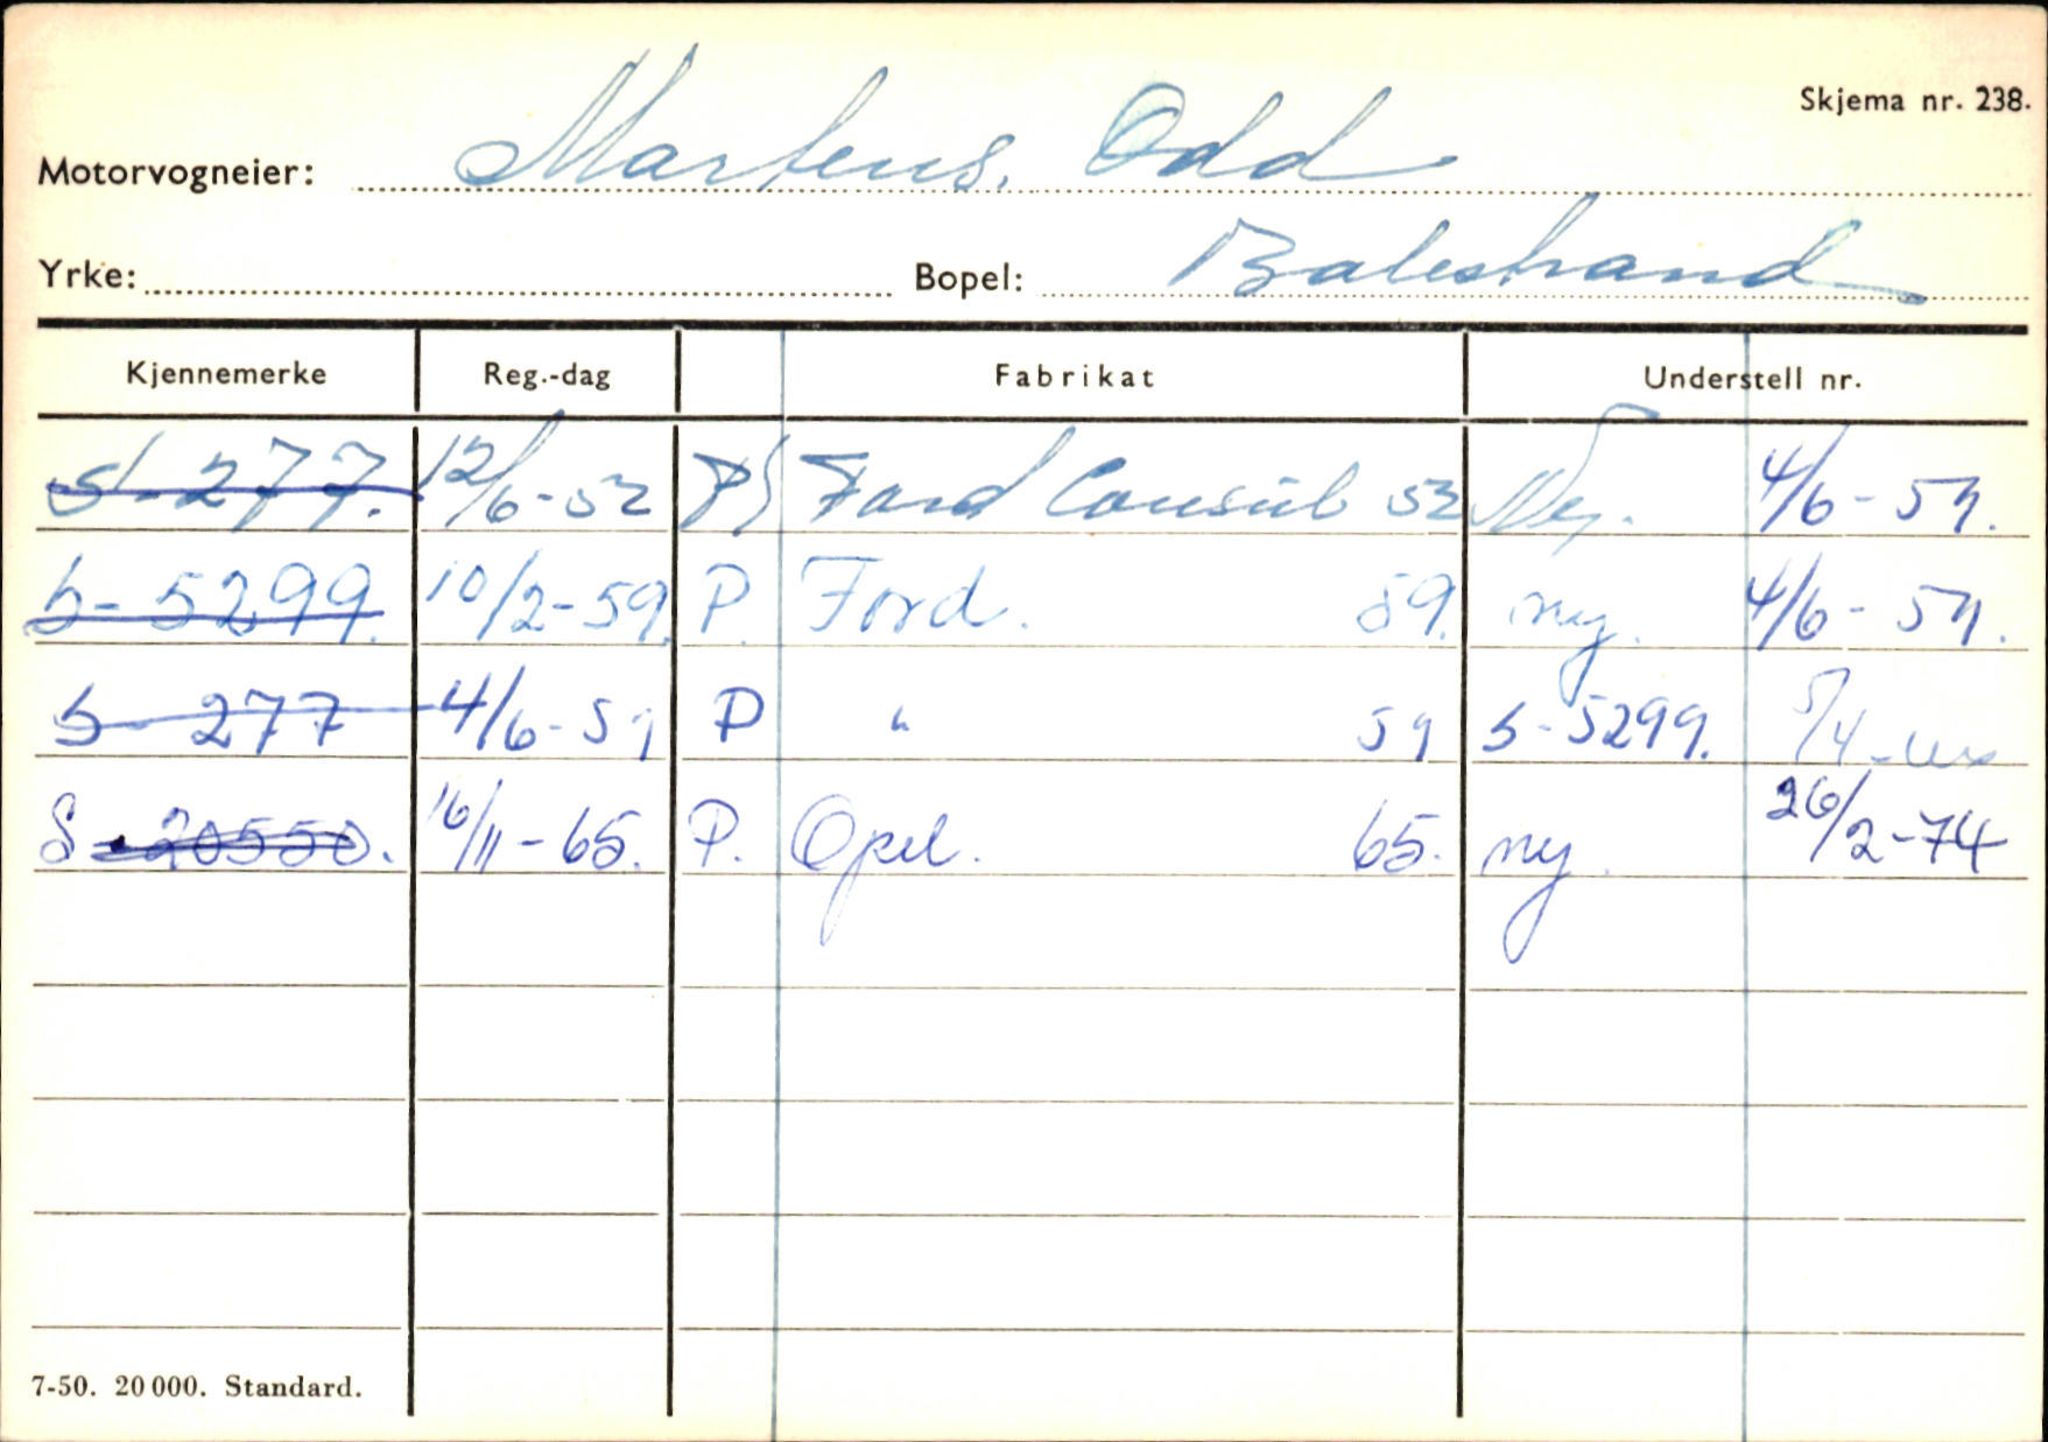 Skjema nr. 238.
Motorvogneier: Martens, Odd
Yrke: Bopel: Balestrand
Kjennemerke Reg.-dag Fabrikat Understell nr.
S-277. 12/6-52 P Ford Consul 52 Ny. 4/6-59.
S-5299. 10/2-59. P. Ford. 59. ny. 4/6-59.
S-277 4/6-59 P " 59 S-5299. 5/4
S-20550. 16/11-65. P. Opel. 65. ny. 26/2-74
7-50. 20 000. Standard.